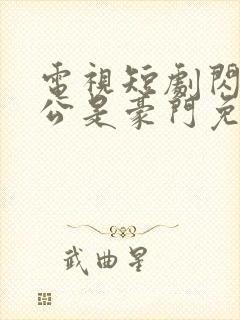 電視短劇閃
公是豪門免
武曲星